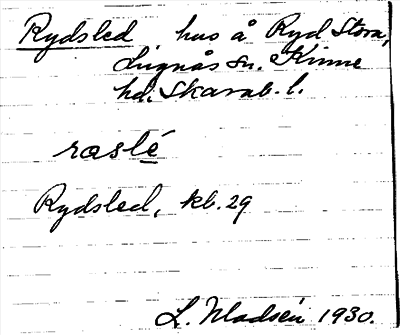 Rydsled hus å Ryd Stora,
Lugnås sn. Kinne
hd. Skarab. l.
raslé
Rydsled, kb. 29
L. Madsén 1930.